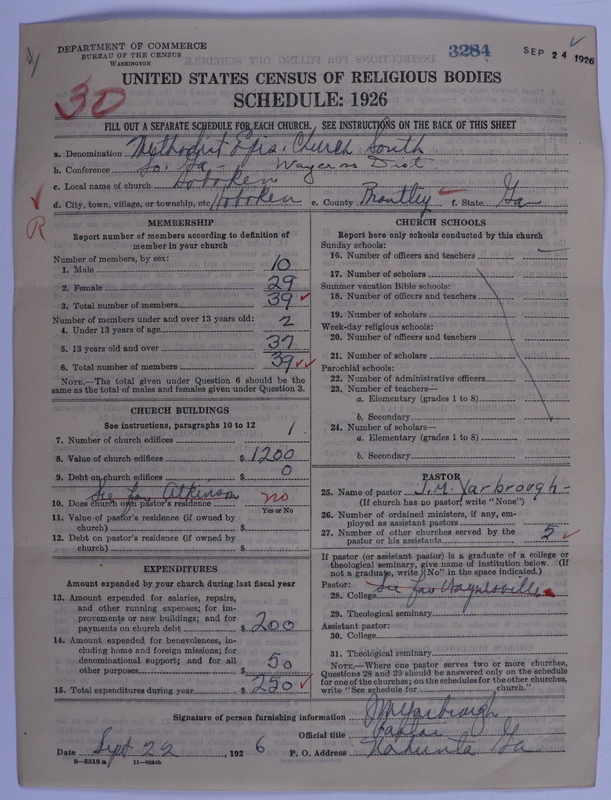 DEPARTMENT OF COMMERCE
BUREAU OF THE CENSUS
WASHINGTON
3284
SEP 24 1926
UNITED STATES CENSUS OF RELIGIOUS BODIES
SCHEDULE: 1926
30
FILL OUT A SEPARATE SCHEDULE FOR EACH CHURCH. SEE INSTRUCTIONS ON THE BACK OF THIS SHEET
a. Denomination Methodist Epis. Church South
b. Conference So. Ga - Waycross Dist
c. Local name of church Hoboken
d. City, town, village, or township, etc Hoboken e. County Brantley f. State Ga
R
MEMBERSHIP
Report number of members according to definition of
member in your church
Number of members, by sex:
1. Male 10
2. Female 29
3. Total number of members 39
Number of members under and over 13 years old:
4. Under 13 years of age 2
5. 13 years old and over 37
6. Total number of members 39
NOTE.—The total given under Question 6 should be the
same as the total of males and females given under Question 3.
CHURCH BUILDINGS
See instructions, paragraphs 10 to 12
7. Number of church edifices 1
8. Value of church edifices $ 1200
9. Debt on church edifices $ 0
See for Atkinson
10. Does church own pastor's residence? no
Yes or No
11. Value of pastor's residence (if owned by
church) $
12. Debt on pastor's residence (if owned by
church) $
EXPENDITURES
Amount expended by your church during last fiscal year
13. Amount expended for salaries, repairs,
and other running expenses; for im-
provements or new buildings; and for
payments on church debt $ 200
14. Amount expended for benevolences, in-
cluding home and foreign missions; for
denominational support; and for all
other purposes $ 50
15. Total expenditures during year $ 250
CHURCH SCHOOLS
Report here only schools conducted by this church
Sunday schools:
16. Number of officers and teachers
17. Number of scholars
Summer vacation Bible schools:
18. Number of officers and teachers
19. Number of scholars
Week-day religious schools:
20. Number of officers and teachers
21. Number of scholars
Parochial schools:
22. Number of administrative officers
23. Number of teachers—
a. Elementary (grades 1 to 8)
b. Secondary
24. Number of scholars—
a. Elementary (grades 1 to 8)
b. Secondary
PASTOR
25. Name of pastor J.M. Yarbrough
(If church has no pastor, write "None")
26. Number of ordained ministers, if any, em-
ployed as assistant pastors
27. Number of other churches served by the
pastor or his assistants 5
If pastor (or assistant pastor) is a graduate of a college or
theological seminary, give name of institution below. (If
not a graduate, write "No" in the space indicated.)
Pastor: See for Waynesville
28. College
29. Theological seminary
Assistant pastor:
30. College
31. Theological seminary
NOTE.—Where one pastor serves two or more churches,
Questions 28 and 29 should be answered only on the schedule
for one of the churches; on the schedules for the other churches,
write "See schedule for church."
Signature of person furnishing information J M Yarbrough
Official title Pastor
Date Sept 22, 1926 P. O. Address Nahunta Ga
8—5518a 11—9064b